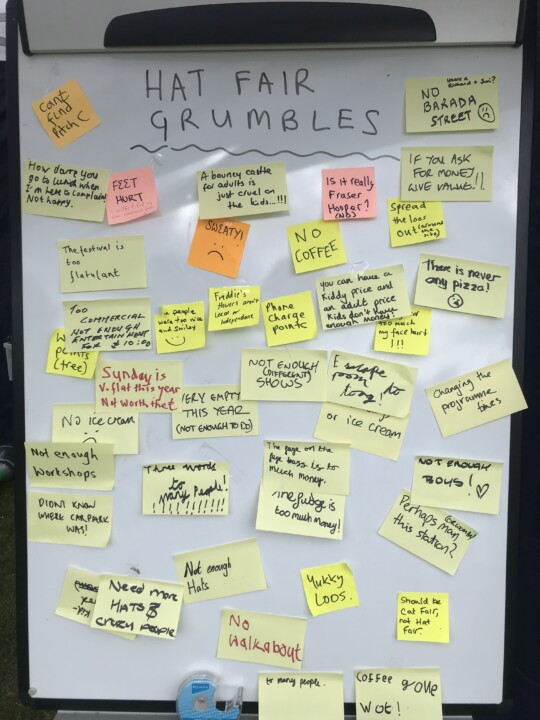 HAT FAIR
GRUMBLES
Cant
find
Pitch C
NO
BARADA
STREET
How dare you
go to lunch when
I'm here to complain
Not happy.
FEET
HURT
A bouncy castle
for adults is
just cruel on
the kids...!!!
Is it really
Fraser
Hooper?
IF YOU ASK
FOR MONEY
GIVE VALUE!!
SWEATY!
NO
COFFEE
Spread
the loos
out (around
the site)
The festival is
too
flatulant
There is never
any pizza!
TOO
COMMERCIAL
NOT ENOUGH
ENTERTAINMENT
FOR £10:00
people
were too nice
and smiley
Freddie's
Flowers aren't
Local or
independent
Phone
Charge
points
you can have a
kiddy price and
an adult price
Kids don't have
enough money!
too much
my face hurt
!!!
(tree)
Sunday is
v. flat this year
Not worth it
VERY EMPTY
THIS YEAR
(NOT ENOUGH TO DO)
NOT ENOUGH
(DIFFERENT)
SHOWS
Escape
room to
or ice cream
Changing the
programme
times
No ice cream
Not enough
Workshops
Three words
to
many People!
!!!!!!!!!
much money.
fudge is
too much money!
NOT ENOUGH
BOYS!
DIDN'T KNOW
WHERE CAR PARK
WAS!
Perhaps man
this station?
Not enough
Hats
Need more
HATS &
CRAZY PEOPLE
YUKKY
LOOS.
Should be
Cat Fair,
not Hat
Fair.
No
Walkabout
to many people.
Coffee gone
Wot!